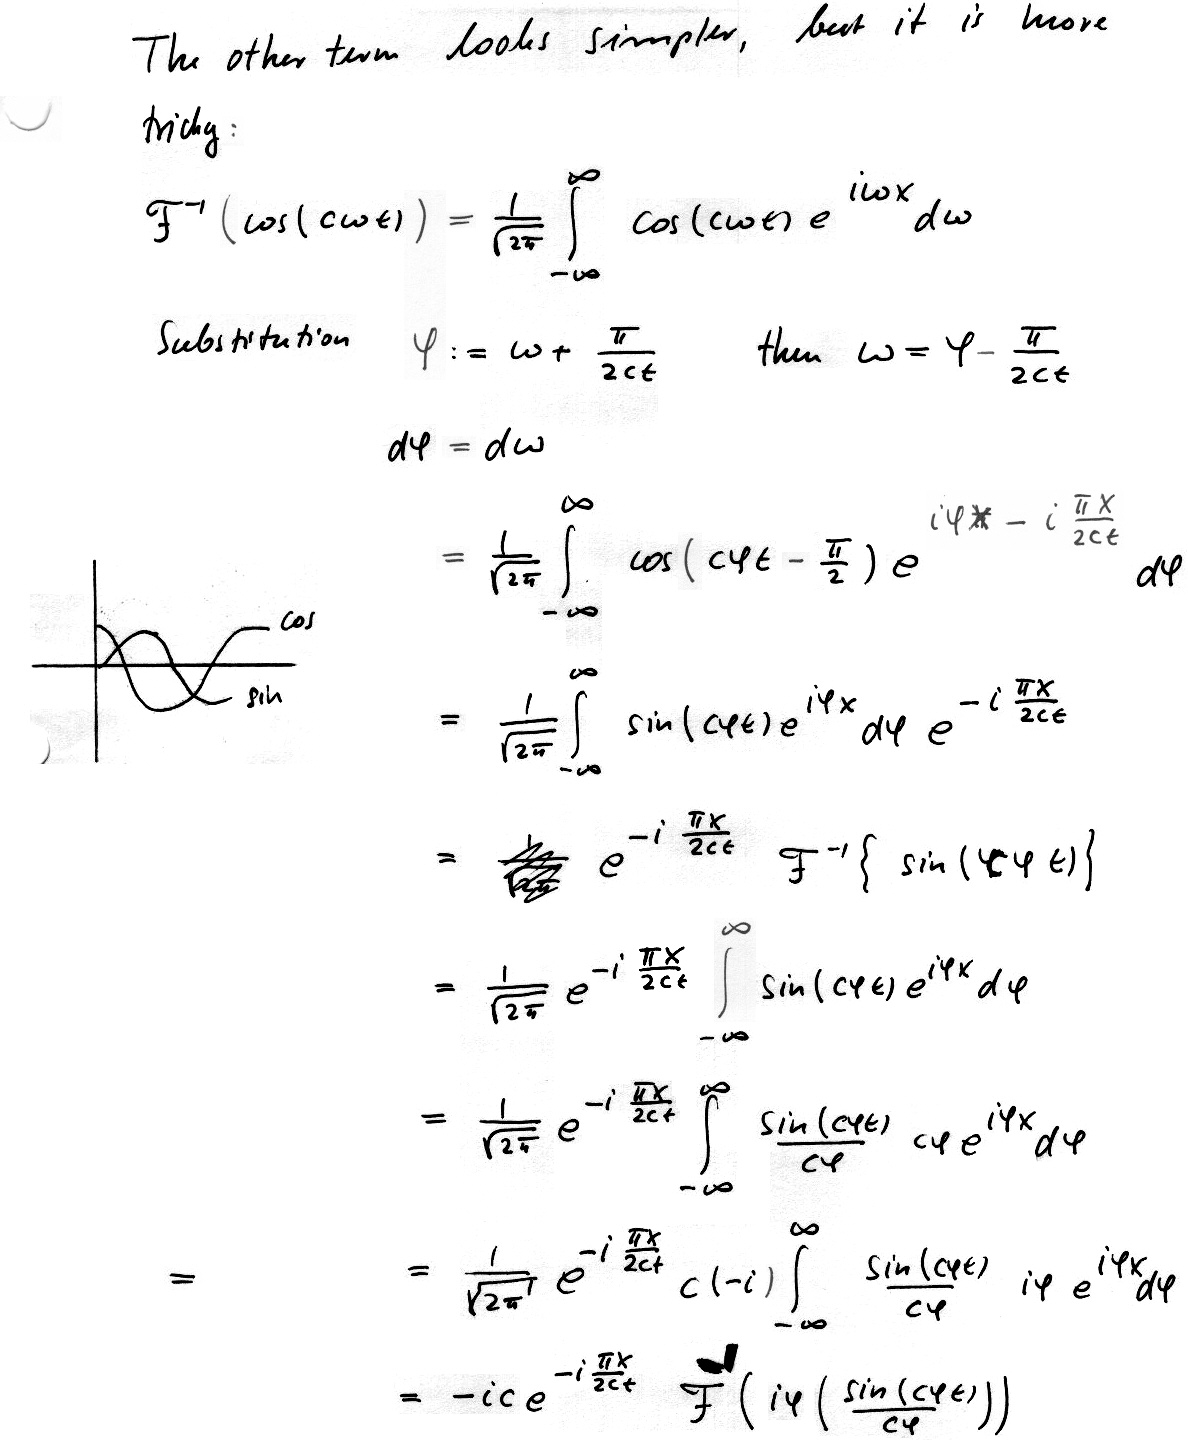 The other term looks simpler, but it is more
tricky:
𝓕⁻¹(cos(cωt)) = 1/√2π ∫_{-∞}^{∞} cos(cωt) e^{iωx} dω
Substitution φ := ω + π/2ct then ω = φ - π/2ct
dφ = dω
= 1/√2π ∫_{-∞}^{∞} cos(cφt - π/2) e^{iφx - i πx/2ct} dφ
cos
sin
= 1/√2π ∫_{-∞}^{∞} sin(cφt) e^{iφx} dφ e^{-i πx/2ct}
= e^{-i πx/2ct} 𝓕⁻¹{ sin(cφt)}
= 1/√2π e^{-i πx/2ct} ∫_{-∞}^{∞} sin(cφt) e^{iφx} dφ
= 1/√2π e^{-i πx/2ct} ∫_{-∞}^{∞} sin(cφt)/cφ cφ e^{iφx} dφ
= = 1/√2π e^{-i πx/2ct} c(-i) ∫_{-∞}^{∞} sin(cφt)/cφ iφ e^{iφx} dφ
= -ic e^{-i πx/2ct} 𝓕( iφ ( sin(cφt)/cφ ))